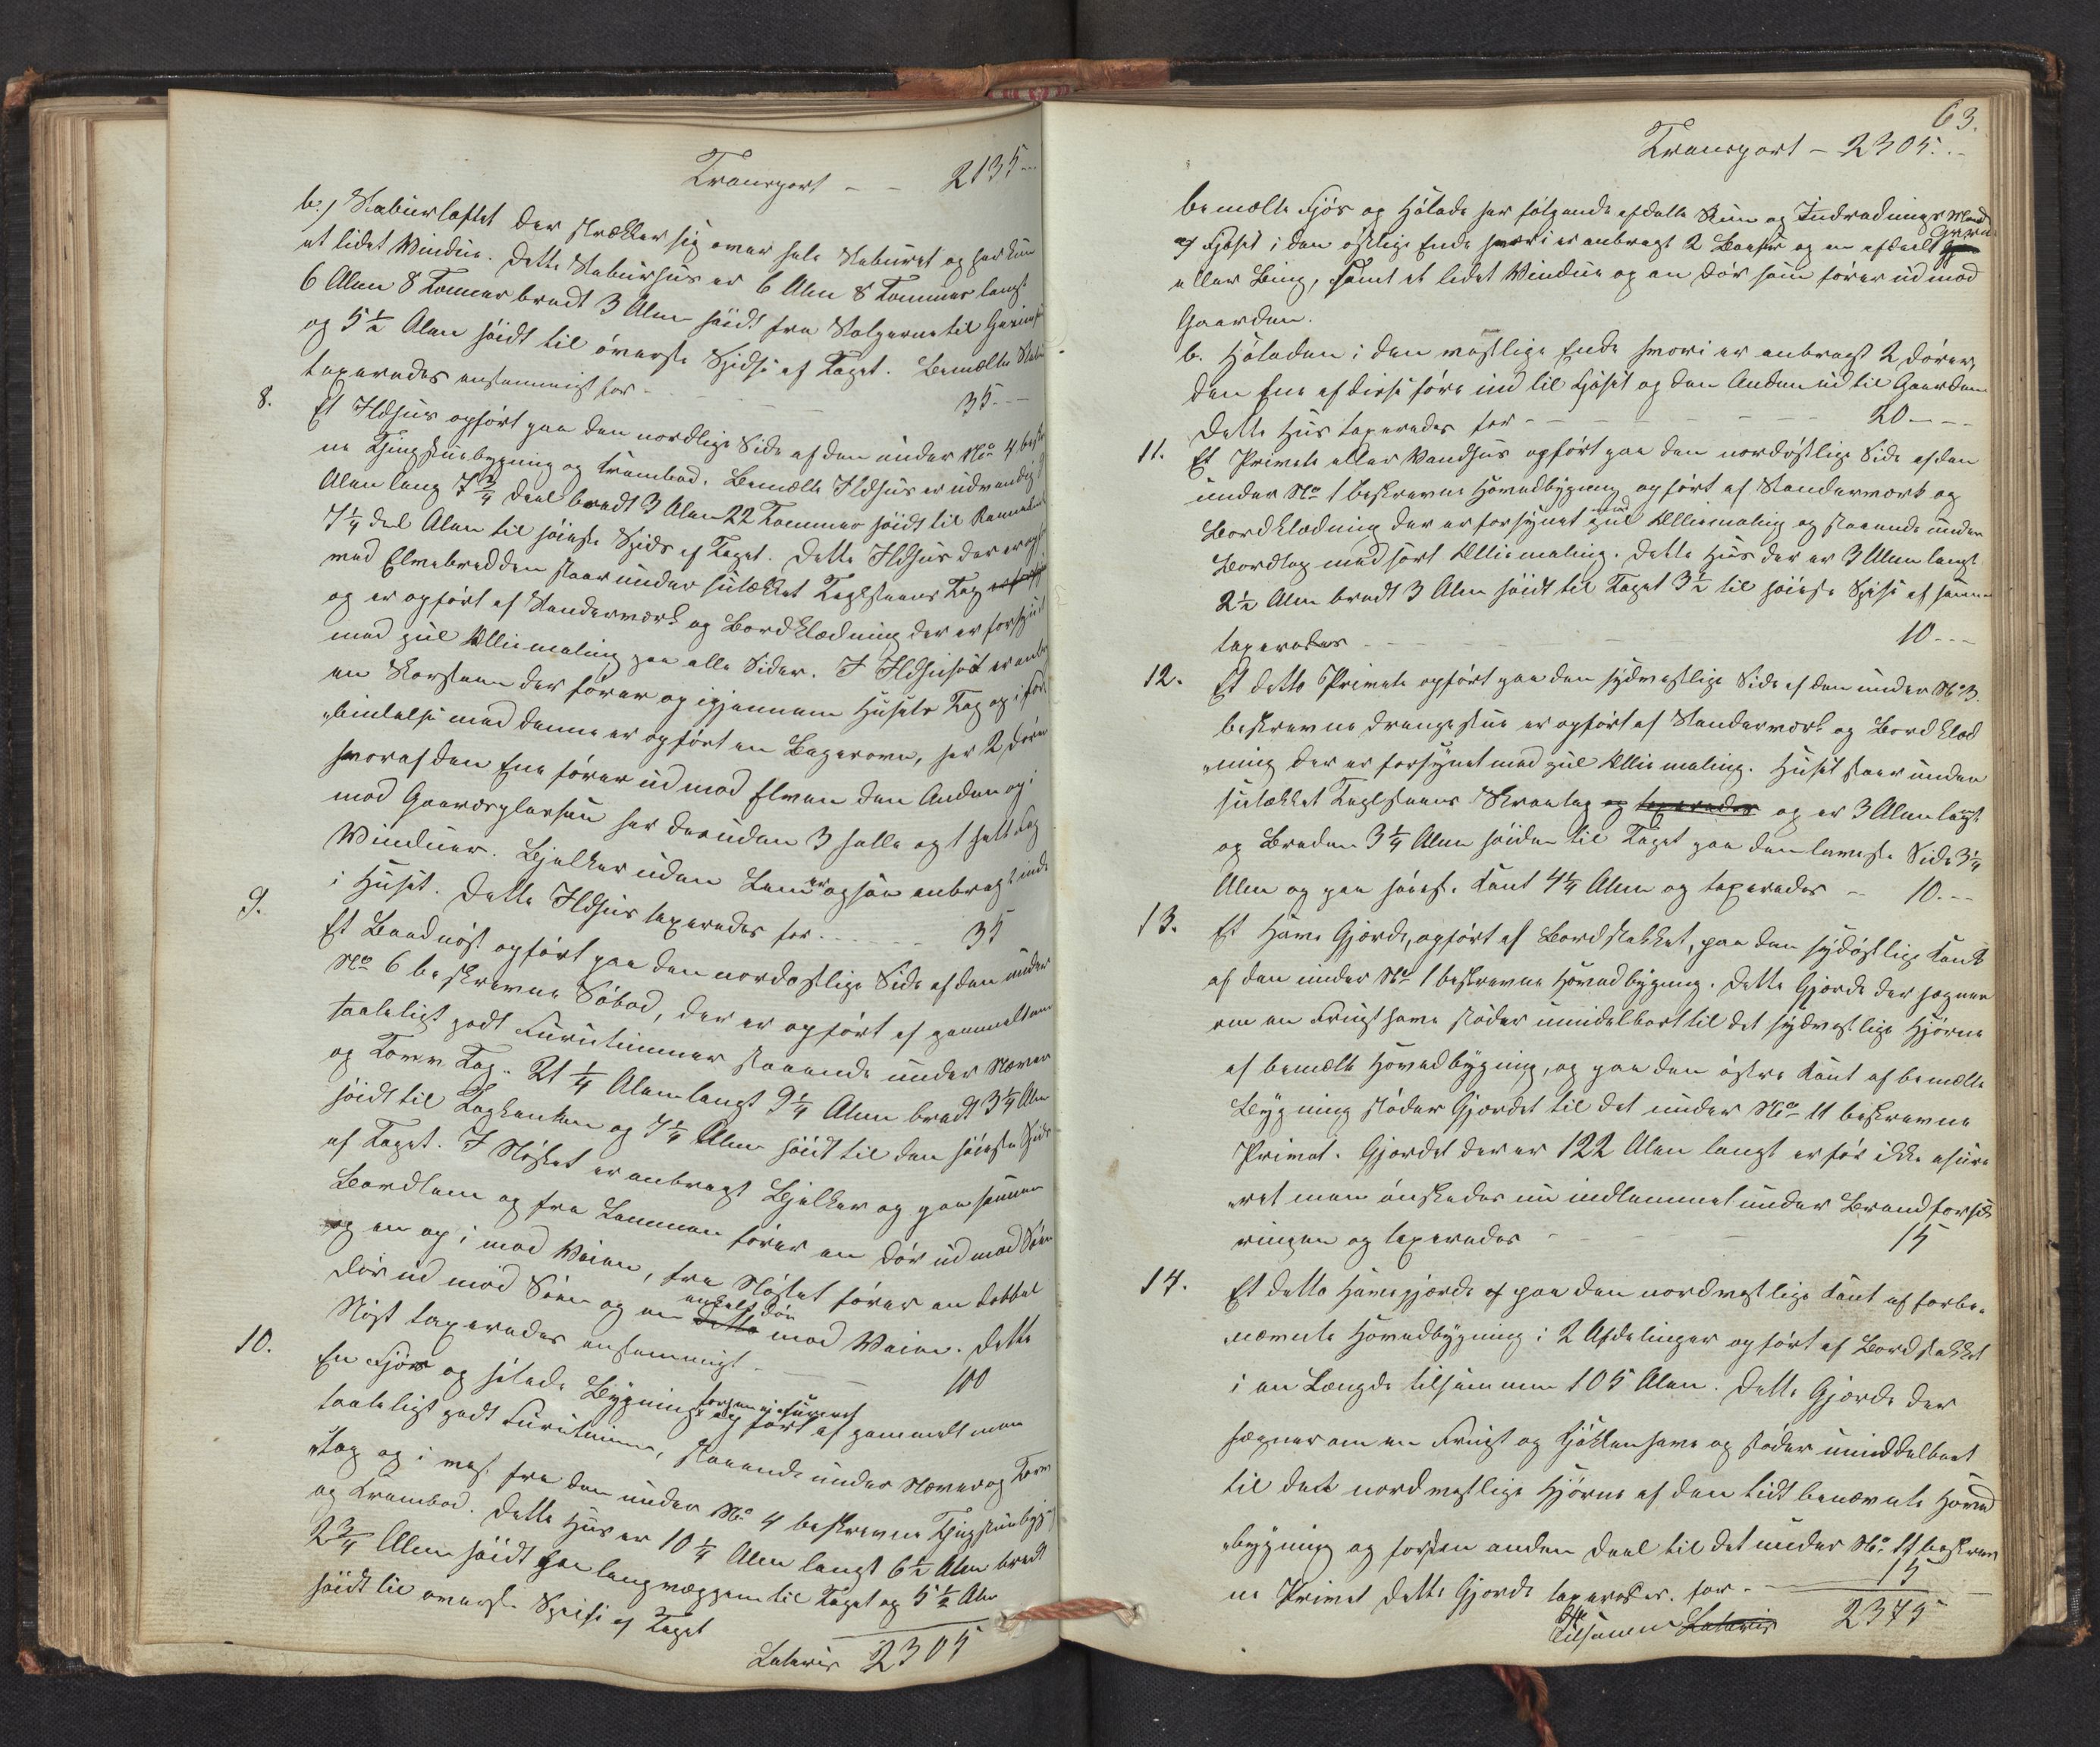 Transport - - 2135 ...
b.) Stabursloftet der strækker sig over hele Staburet og har kun
et lidet Vindue. Dette Staburhus er 6 Alen 8 Tommer langt
6 Alen 8 Tommer bredt 3 Alen høidt fra Stolperne til
og 5 1/2 Alen høidt til øverste Spidse af Taget. Bemelte
taxeredes enstemmigt for - - - 35 - -
8. Et Ildhus opført paa den nordlige Side af den under No 4
ne Thingstuebygning og Krambod. Bemelte Ildhus er udvendig
Alen lang 7 3/4 deel bredt 3 Alen 22 Tommer høidt til
7 1/4 deel Alen til høieste Spids af Taget. Dette Ildhus der
mod Elvebredden staar under hulækket Teglsteens Tag
og er opført af Standerværk og Bordklædning der er forsynet
med guul Olliemaling paa alle Sider. I Ildhuset er
en Skorsteen der fører op igjennem Husets Tag og i for
bindelse med denne er opført en Bagerovn, har 2 Døre
hvoraf den Ene fører ud mod Elven den Anden op i
mod Gaardsplassen har desuden 3 hele og 1 halt
Vinduer. Bjelker uden Lem er ogsaa anbragt inde
i Huset. Dette Ildhus taxeredes for - - - 35
9. Et Baadnøst opført paa den nordøstlige Side af den under
No 6 beskrevne Søbod, der er opført af gammelt men
taaleligt godt Furutimmer staaende under Næver
og Torv Tag. 21 1/4 Alen langt 9 1/4 Alen bredt 3 1/4 Alen
høidt til Tagkanten og 7 1/4 Alen høidt til den høieste Spids
af Taget. I Nøstet er anbragt Bjelker og paa samme
Bordlem og fra Lemmen fører en Dør ud mod Søen
og en op i mod Veien, fra Nøstet fører en dobbel
Dør ud mod Søen og en detto enkelt Dør mod Veien. Dette
Nøst taxeredes enstemmigt - - 100
10. En Fjøs og Hølade Bygning forhen ei asureret opført af gammelt men
taaleligt godt Furutimmer, staaende under Næver og Torv
Tag og i vest fra den under No 4 beskrevne Thingstuebyg
og Krambod. Dette Hus er 10 1/4 Alen langt 6 1/2 Alen bredt
2 3/4 Alen høidt paa langvæggene til Taget og 5 1/2 Alen
høidt til øverste Spidse af Taget
Lateris 2305
63.
Transport - 2305. ..
bemelte Fjøs og Hølade har følgende afdelte Rum og Indredninger
a) Fjøset i den østlige Ende hvori er anbragt 2 Baaser og en afdeelt
eller Bing, samt et lidet Vindue og en Dør som fører ud mod
Gaarden.
b. Høladen i den vestlige Ende hvori er anbragt 2 Dører,
den Ene af disse føre ind til Fjøset og den Anden ud til Gaarden
Dette Hus taxeredes for - - - 20 - - -
11. Et Privete eller Vandhus opført paa den nordøstlige Side af den
under No 1 beskrevne Hovedbygning opført af Standerværk og
Bordklædning der er forsynet med guul Olliemaling og staaende under
Bordtag med sort Olliemaling. Dette Hus der er 3 Alen langt
2 1/2 Alen bredt 3 Alen høidt til Taget 3 1/2 til høieste Spidse af samme
taxeredes - - - 10 - - -
12. Et dette Privete opført paa den sydvestlige Side af den under No 3
beskrevne Drengestue er opført af Standerværk og Bordklæd
ning der er forsynet med guul Olliemaling. Huset staar under
hulækket Teglsteens Skraatag og taxeredes og er 3 Alen langt
og Breden 3 1/4 Alen høiden til Taget paa den laveste Side 3 1/4
Alen og paa høiest. Kant 4 1/4 Alen og taxeredes - 10. - -
13. Et Have Gjærde, opført af Bordstakket, paa den sydøstlige Kant
af den under No 1 beskrevne Hovedbygning. Dette Gjærde der hegner
om en Frugthave støder umidelbart til det sydvestlige Hjørne
af bemelte Hovedbygning, og paa den østre Kant af bemelte
Bygning støder Gjærdet til det under No 11 beskrevne
Privet. Gjærdet der er 122 Alen langt er før ikke asure
ret men ønskedes nu indlemmet under Brandforsik
ringen og taxeredes - - - 15
14. Et dette Havegjærde af paa den nordvestlige Kant af forbe
nævnte Hovedbygning i 2 Afdelinger opført af Bordstakket
i en Længde tilsammen 105 Alen. Dette Gjærde der
hegner om en Frugt og Kjøkkenhave og støder umiddelbart
til det nordvestlige Hjørne af den tidt benævnte Hoved
bygning og for den anden Deel til det under No 11 beskrev
ne Privet dette Gjærde taxeredes for - 15
Tilsamen Lateris 2375